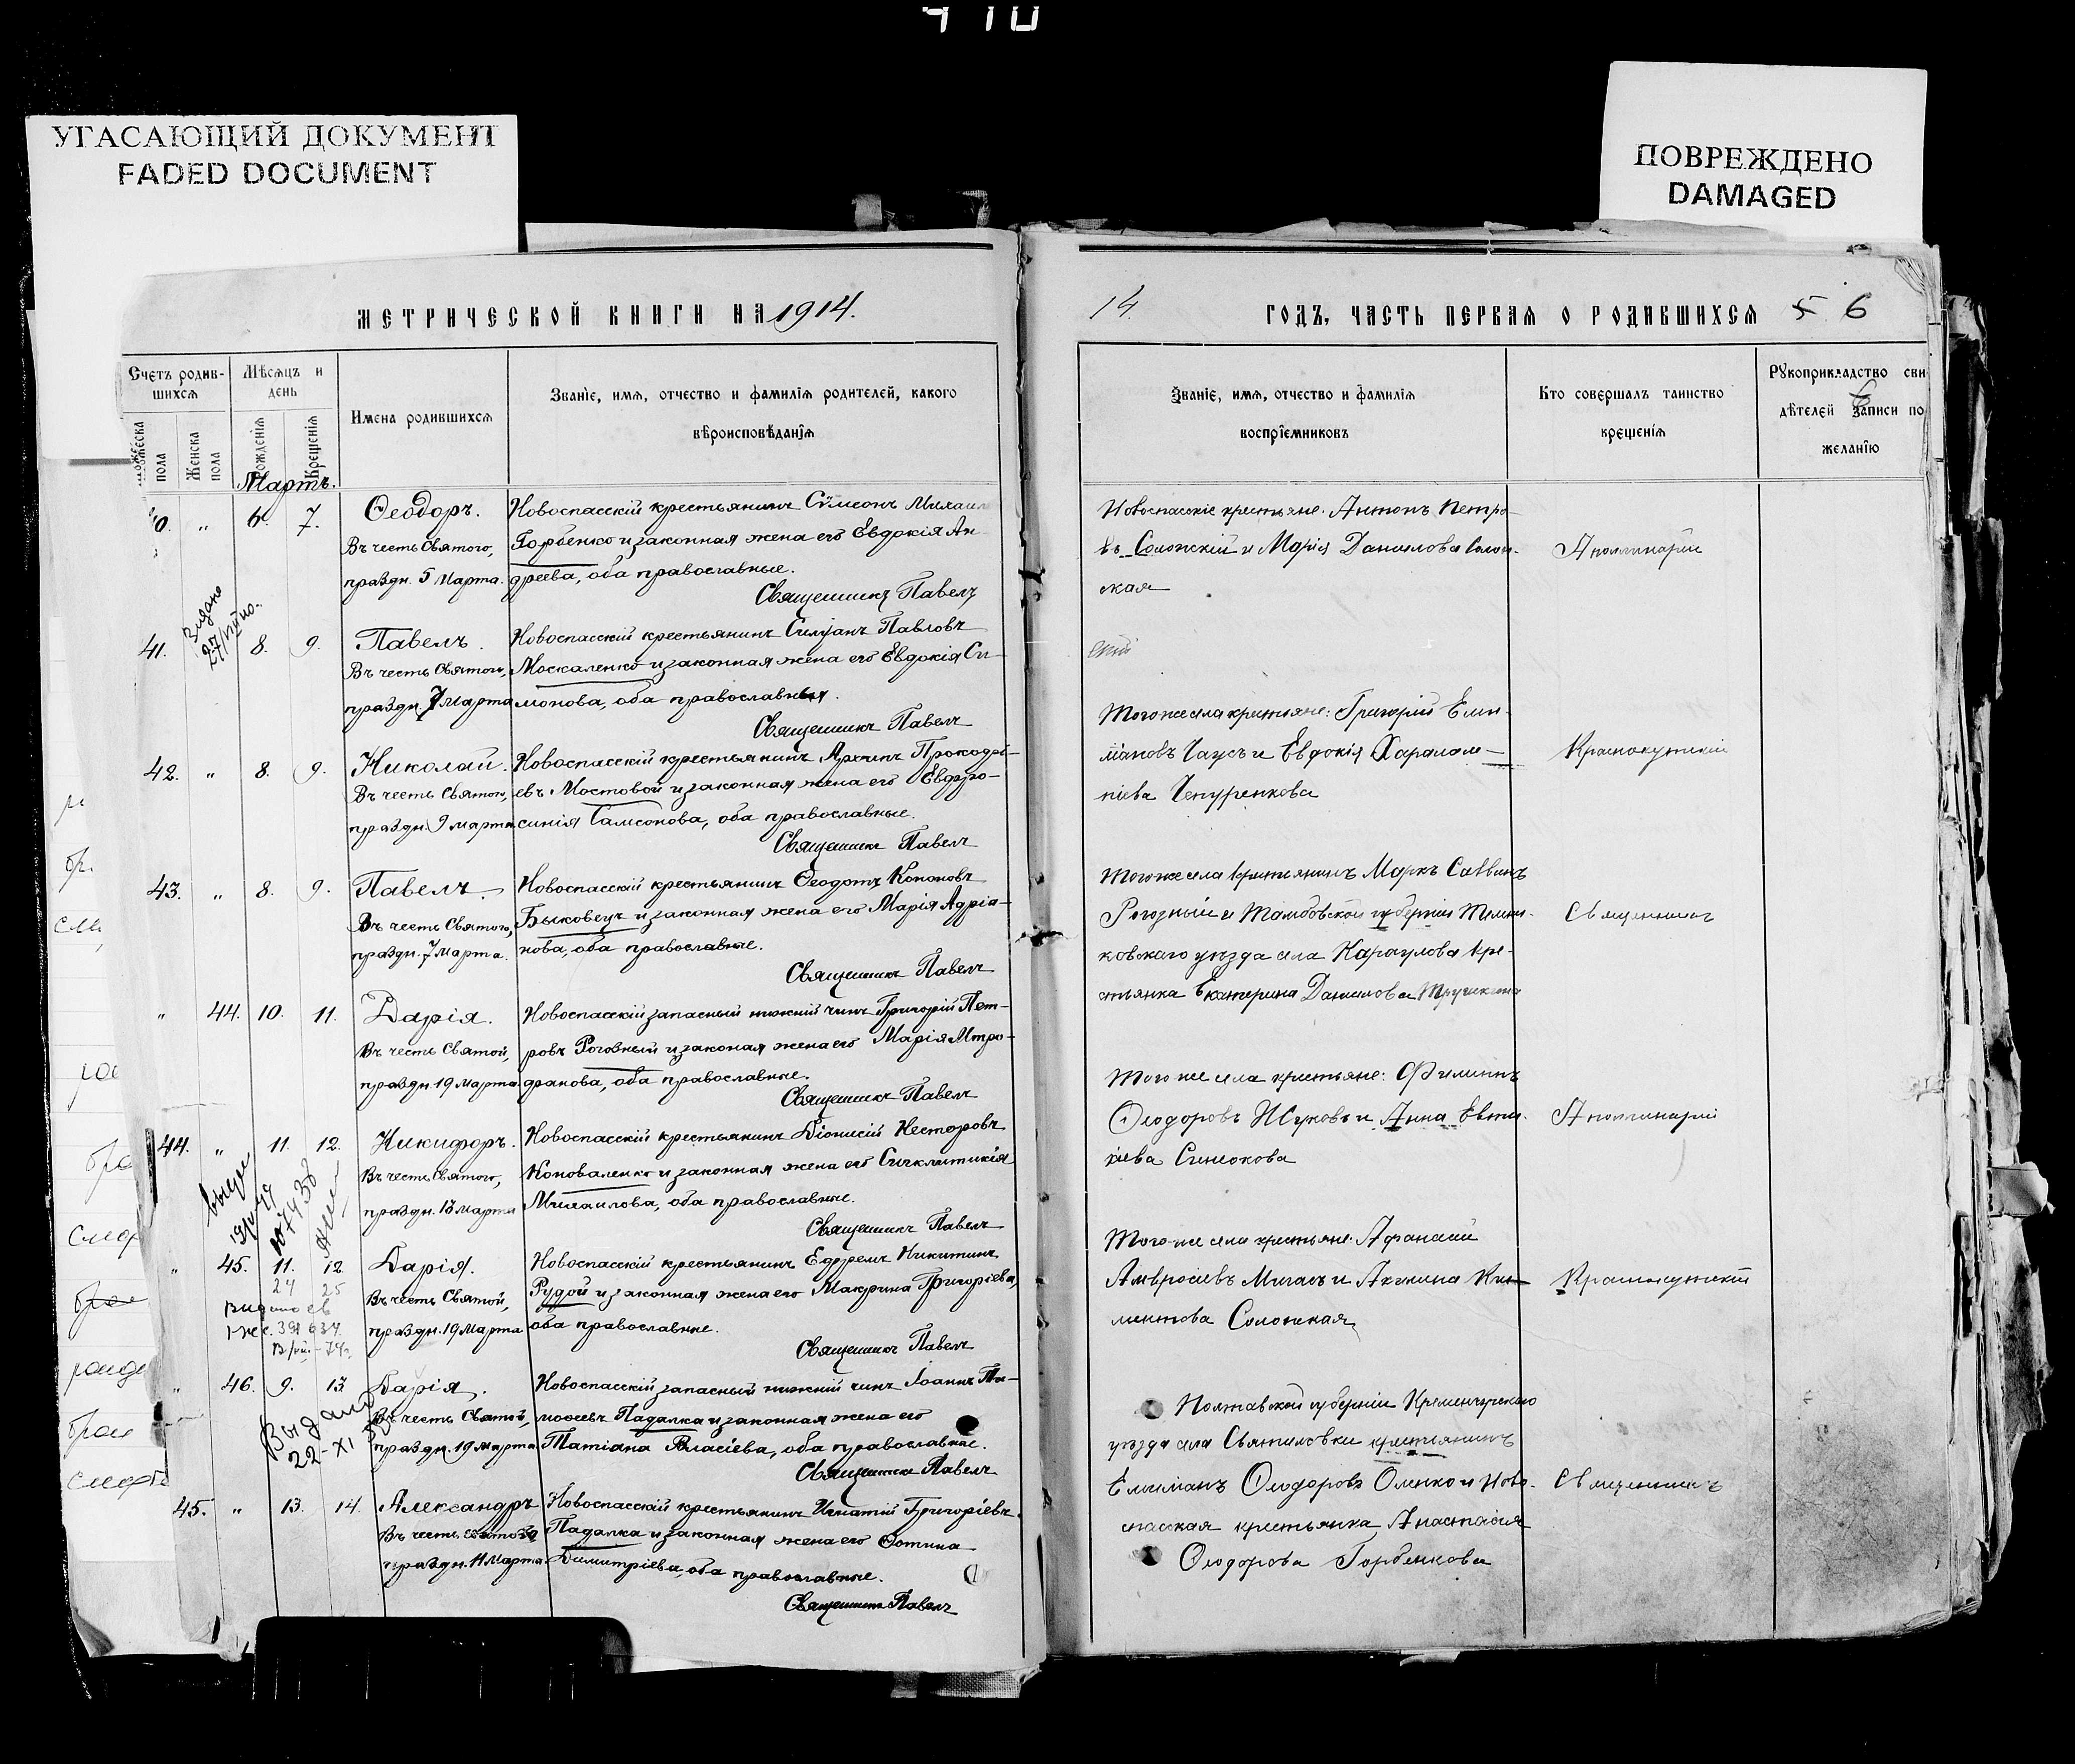 410
УГАСАЮЩИЙ ДОКУМЕНТ
FADED DOCUMENT
ПОВРЕЖДЕНО
DAMAGED
МЕТРИЧЕСКОЙ КНИГИ НА 1914.
Счетъ родив-
шихся
Мѣсяцъ и
день
Имена родившихся
Званіе, имя, отчество и фамилія родителей, какого
вѣроисповѣданія
пола
Женска
пола
Рожденія
Крещенія
Мартъ.
0. „ 6. 7. Ѳеодоръ. Новоспасскій крестьянинъ Сѵмеонъ Михаил
Въ честь Святого, Горбенко и законная жена его Евдокія Ан
праздн. 5 Марта. дреева, оба православные.
Священникъ Павелъ
41. 8. 9. Павелъ. Новоспасскій крестьянинъ Силуанъ Павловъ
Въ честь Святого, Москаленко и законная жена его Евдокія Си-
праздн. 7 Марта монова, оба православныя.
Священникъ Павелъ
42. „ 8. 9. Николай. Новоспасскій крестьянинъ Архипъ Прокофі-
Въ честь Святого, евъ Мостовой и законная жена его Евфро-
праздн. 9 марта синія Самсонова, оба православные.
Священникъ Павелъ
43. „ 8. 9. Павелъ. Новоспасскій крестьянинъ Ѳеодотъ Кононовъ
Въ честь Святого, Быковецъ и законная жена его Марія Адріа-
праздн. 7 Марта. нова, оба православные.
Священникъ Павелъ
„ 44. 10. 11. Дарія. Новоспасскій запасный нижній чинъ Григорій Пет-
Въ честь Святой, ровъ Роговный и законая жена его Марія Мтро-
праздн. 19 Марта фанова, оба православные.
Священникъ Павелъ
44. „ 11. 12. Никифоръ. Новоспасскій крестьянинъ Діонисій Несторовъ
Въ честь Святого, Коноваленко и законная жена его Сигклитикія
праздн. 13 Марта Михаилова, оба православные.
Священникъ Павелъ
„ 45. 11. 12. Дарія. Новоспасскій крестьянинъ Ефремъ Никитинъ
24 25
Въ честь Святой, Рудой и законная жена его Макрина Григоріева,
праздн. 19 Марта оба православные.
Священникъ Павелъ
„ 46. 9. 13. Дарія. Новоспасскій запасный нижній чинъ Іоаннъ Ти-
Въ честь Святой, моѳеевъ Падалка и законная жена его
праздн. 19 Марта Татіана Власіева, оба православные.
Выдано
22-XI
Священникъ Павелъ
45. „ 13. 14. Александръ Новоспасскій крестьянинъ Игнатій Григоріевъ
Въ честь Святого Падалка и законная жена его Фотина
праздн. Марта Димитріева, оба православные.
Священникъ Павелъ
14
ГОДЪ, ЧАСТЬ ПЕРВАЯ О РОДИВШИХСЯ 5 6
Званіе, имя, отчество и фамилія
воспріемниковъ
Кто совершалъ таинство
крещенія
Рукоприкладство сви
дѣтелей записи по
желанію
Новоспасскіе крестьяне: Антонъ Петро-
въ Солонскій и Марія Данилова Солон- Аполлинарій
ская
Того же села крестьяне: Григорій Еми-
ліановъ Чаусъ и Евдокія Харалам- Краснокутскій
піева Чепуренкова
Того же села крестьянинъ Маркъ Саввинъ
Рогозный и Тамбовской губерніи Темни- Священникъ
ковскаго уѣзда села Караулова кре-
стьянка Екатерина Данилова
Того же села крестьяне: Филиппъ
Ѳеодоровъ Жуковъ и Анна Евти- Аполлинарій
хіева Синеокова
Того же села крестьяне: Афанасій
Амвросіевъ Мигаль и Акилина Кли- Краснокутскій
ментова Солонская
Полтавской губерніи Кременчугскаго
уѣзда села Святиловки крестьянинъ
Емиліанъ Ѳеодоровъ Оленко и Ново- Священникъ
спасская крестьянка Анастасія
Ѳеодорова Горбенкова